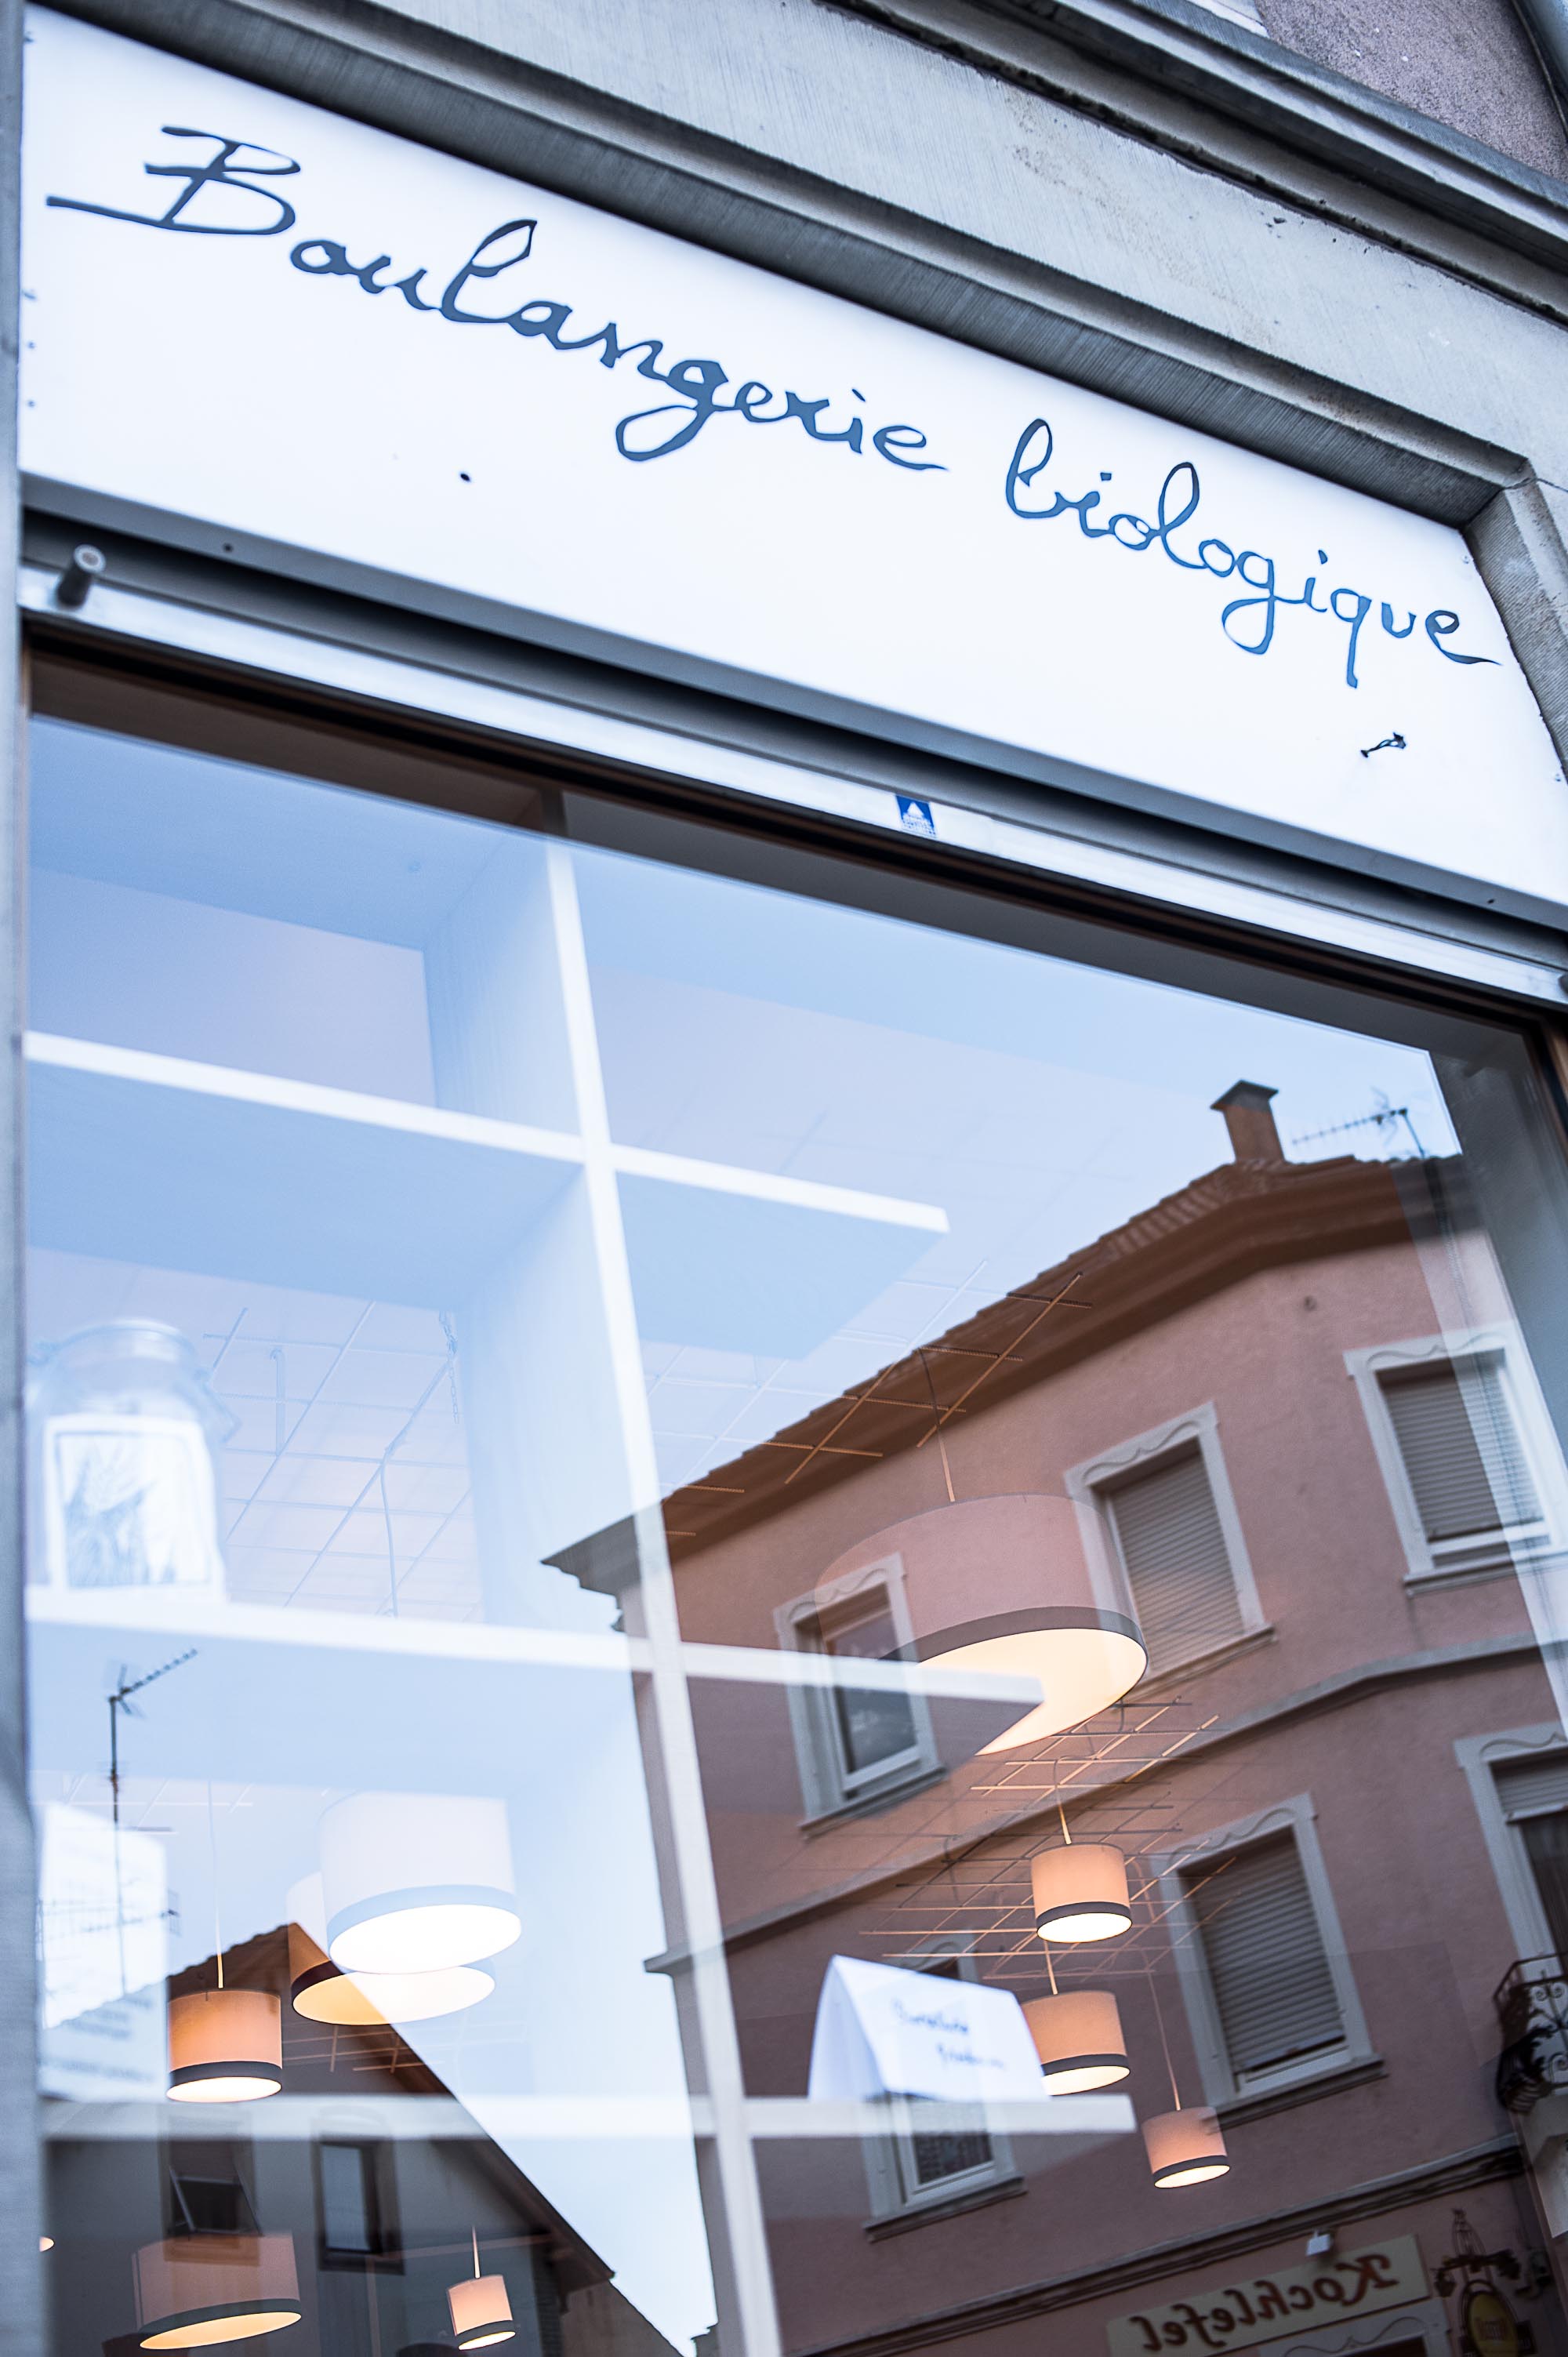 Boulangerie biologique
Kochlefel